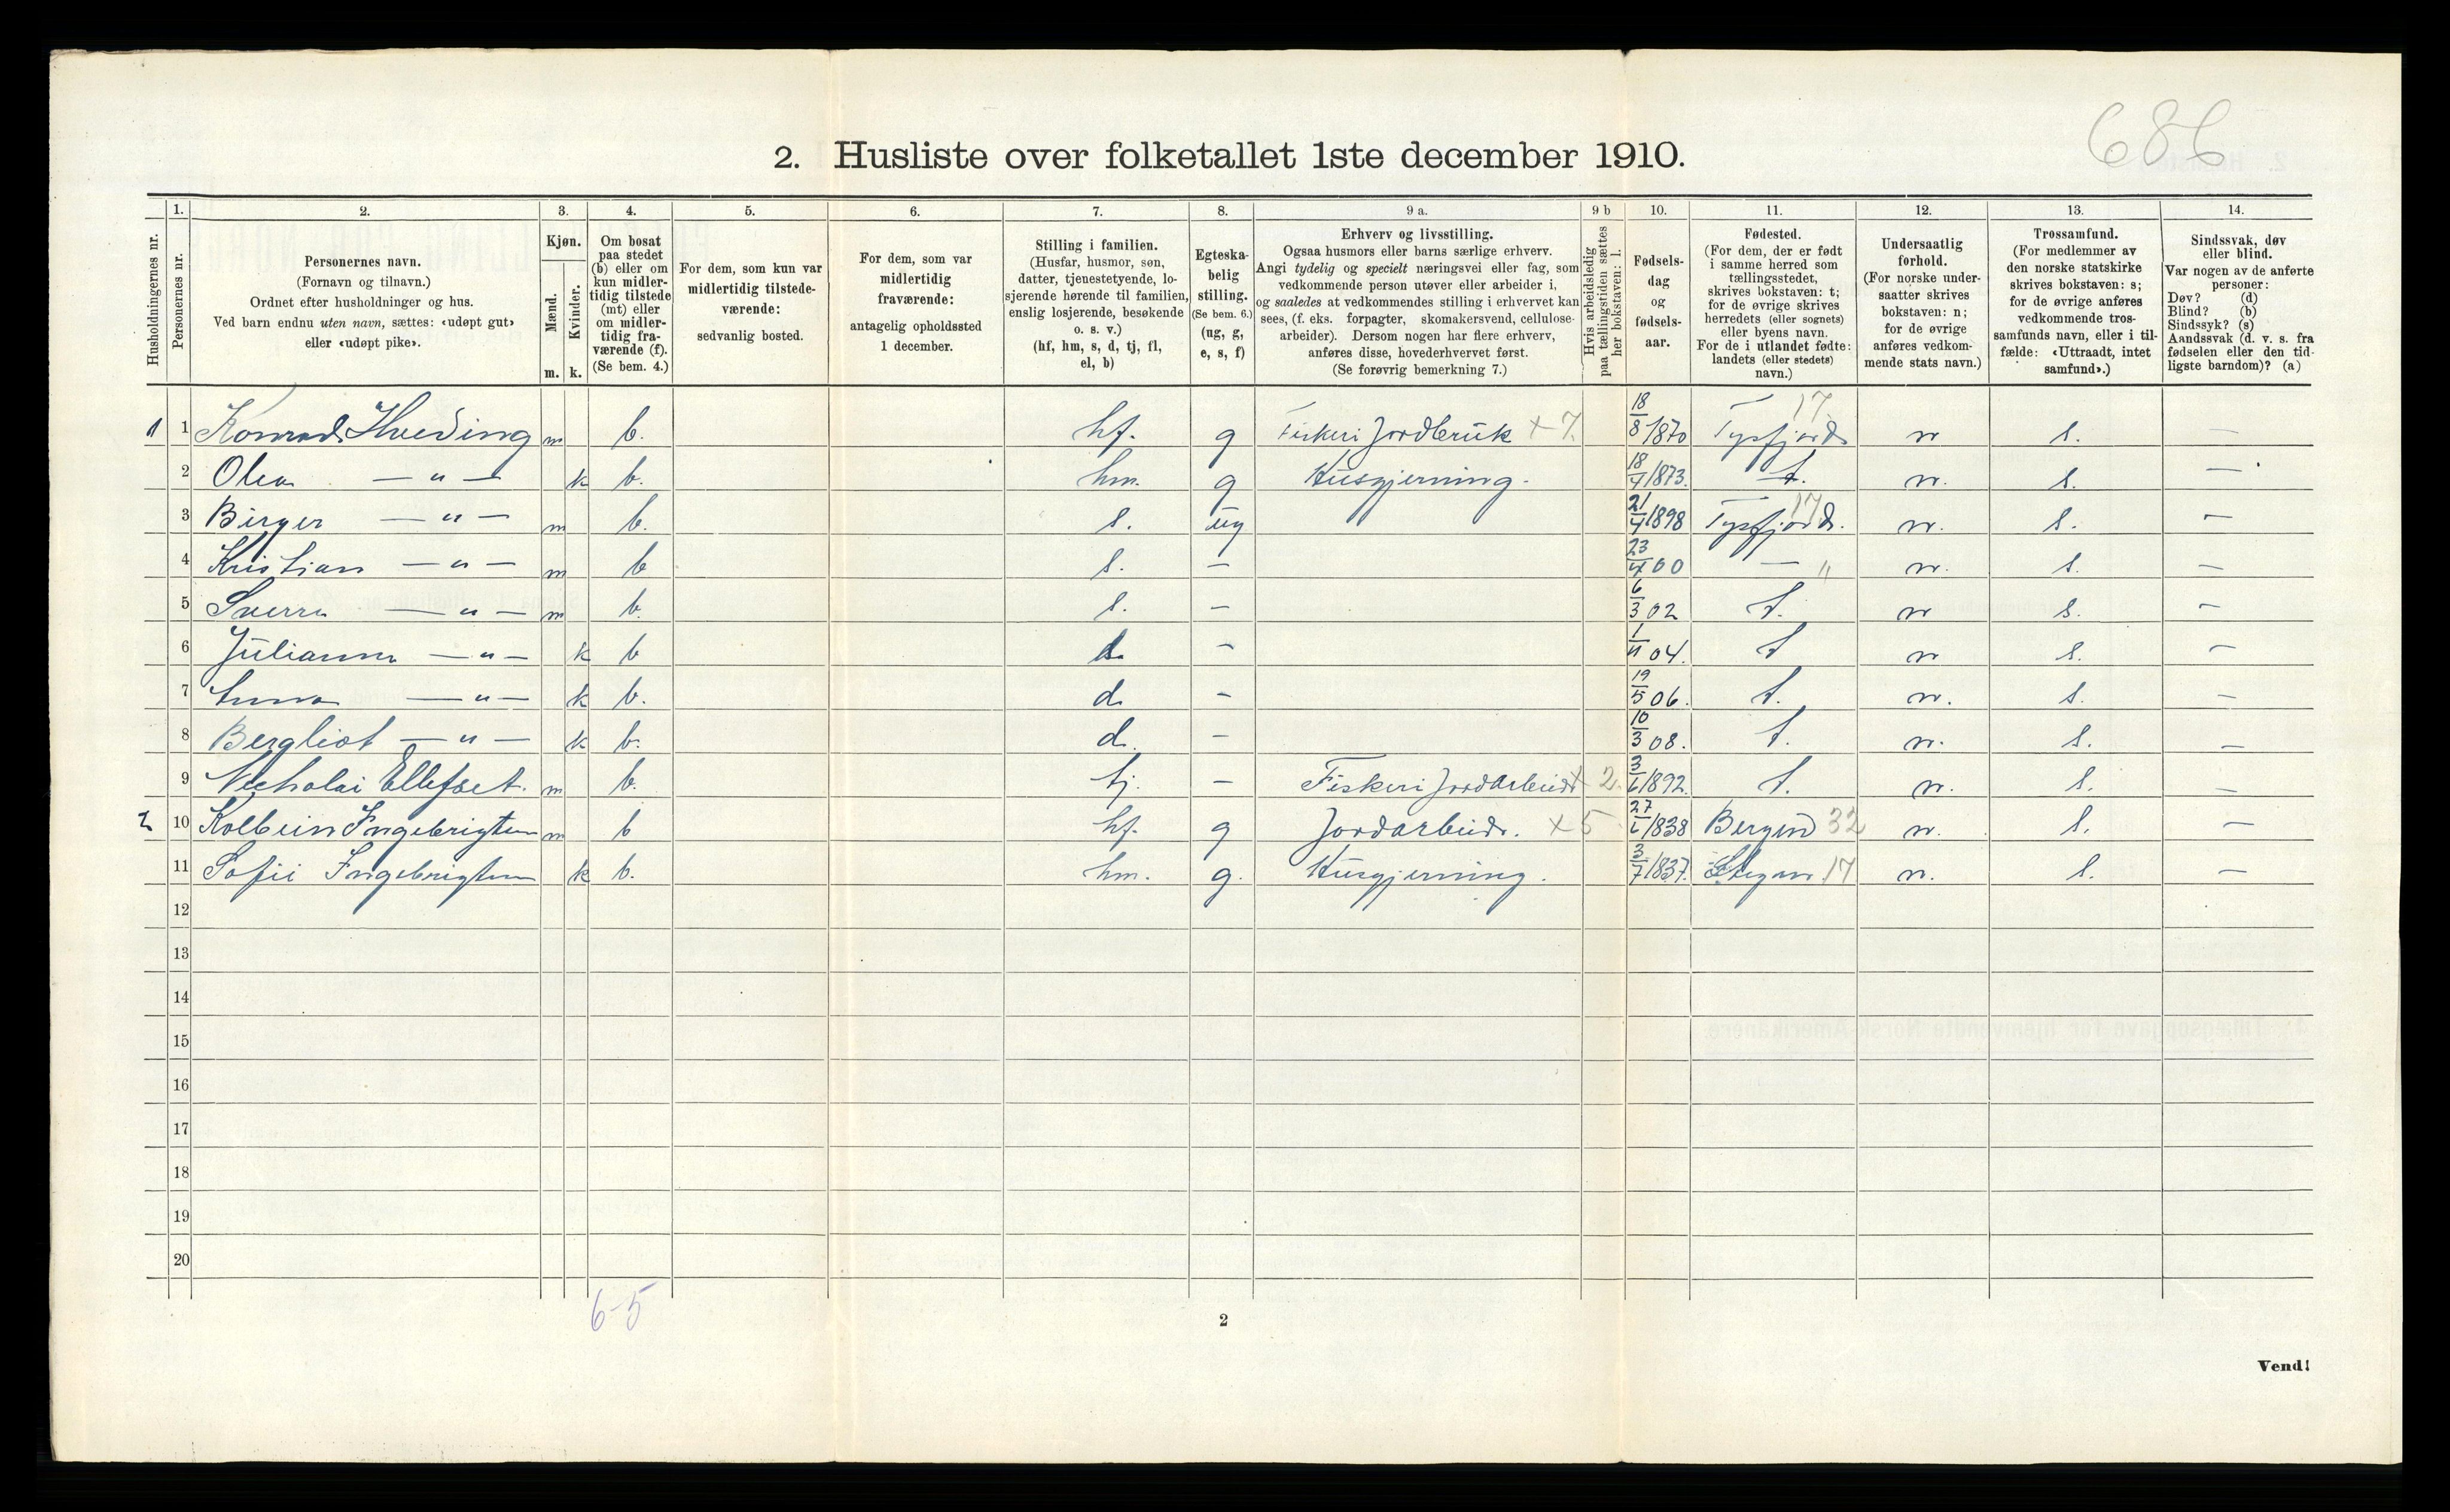 686
2. Husliste over folketallet 1ste december 1910.
Husholdningernes nr.
1. Personernes nr.
2. Personernes navn. (Fornavn og tilnavn.) Ordnet efter husholdninger og hus. Ved barn endnu uten navn, sættes: «udøpt gut» eller «udøpt pike».
3. Kjøn. Mænd. m. Kvinder. k.
4. Om bosat paa stedet (b) eller om kun midler-tidig tilstede (mt) eller om midler-tidig fra-værende (f). (Se bem. 4.)
5. For dem, som kun var midlertidig tilstede-værende: sedvanlig bosted.
6. For dem, som var midlertidig fraværende: antagelig opholdssted 1 december.
7. Stilling i familien. (Husfar, husmor, søn, datter, tjenestetyende, lo-sjerende hørende til familien, enslig losjerende, besøkende o. s. v.) (hf, hm, s, d, tj, fl, el, b)
8. Egteska-belig stilling. (Se bem. 6.) (ug, g, e, s, f)
9 a. Erhverv og livsstilling. Ogsaa husmors eller barns særlige erhverv. Angi tydelig og specielt næringsvei eller fag, som vedkommende person utøver eller arbeider i, og saaledes at vedkommendes stilling i erhvervet kan sees, (f. eks. forpagter, skomakersvend, cellulose-arbeider). Dersom nogen har flere erhverv, anføres disse, hovederhvervet først. (Se forøvrig bemerkning 7.)
9 b Hvis arbeidsledig paa tællingstiden sættes her bokstaven: l.
10. Fødsels-dag og fødsels-aar.
11. Fødested. (For dem, der er født i samme herred som tællingsstedet, skrives bokstaven: t; for de øvrige skrives herredets (eller sognets) eller byens navn. For de i utlandet fødte: landets (eller stedets) navn.)
12. Undersaatlig forhold. (For norske under-saatter skrives bokstaven: n; for de øvrige anføres vedkom-mende stats navn.)
13. Trossamfund. (For medlemmer av den norske statskirke skrives bokstaven: s; for de øvrige anføres vedkommende tros-samfunds navn, eller i til-fælde: «Uttraadt, intet samfund».)
14. Sindssvak, døv eller blind. Var nogen av de anførte personer: Døv? (d) Blind? (b) Sindssyk? (s) Aandssvak (d. v. s. fra fødselen eller den tid-ligste barndom)? (a)
1 1 Konrad Hveding m b. hf. g Fiskeri Jordbruk + 7. 18/8 1870 Tysfjord 17 n s. —
2 Olea — " — k b. hm. g Husgjerning. 18/4 1873. t. n. s. —
3 Birger — " — m b. s. ug 21/4 1898 Tysfjord. 17 n. s. —
4 Kristian — " — m b s. — 23/4 00 — " n. s. —
5 Sverre — " — m b. s. — 6/3 02 t. n s. —
6 Julianna — " — k b d. — 1/11 04. t n s. —
7 Anna — " — k b. d — 19/5 06. t. n. s. —
8 Bergliot — " — k b. d. — 10/3 08. t. n. s. —
9 Nicholai Ellefset. m b. tj. — Fiskeri Jordarbeid + 2. 3/6 1892. t. n. s. —
2 10 Kolbein Ingebrigtsen m b hf. g Jordarbeide. + 5 27/6 1838 Bergen 32 n. s. —
11 Sofie Ingebrigtsen k b. hm. g. Husgjerning. 3/7 1837. Stegen 17 n. s. —
12
13
14
15
16
17
18
19
20
6-5
2
Vend!